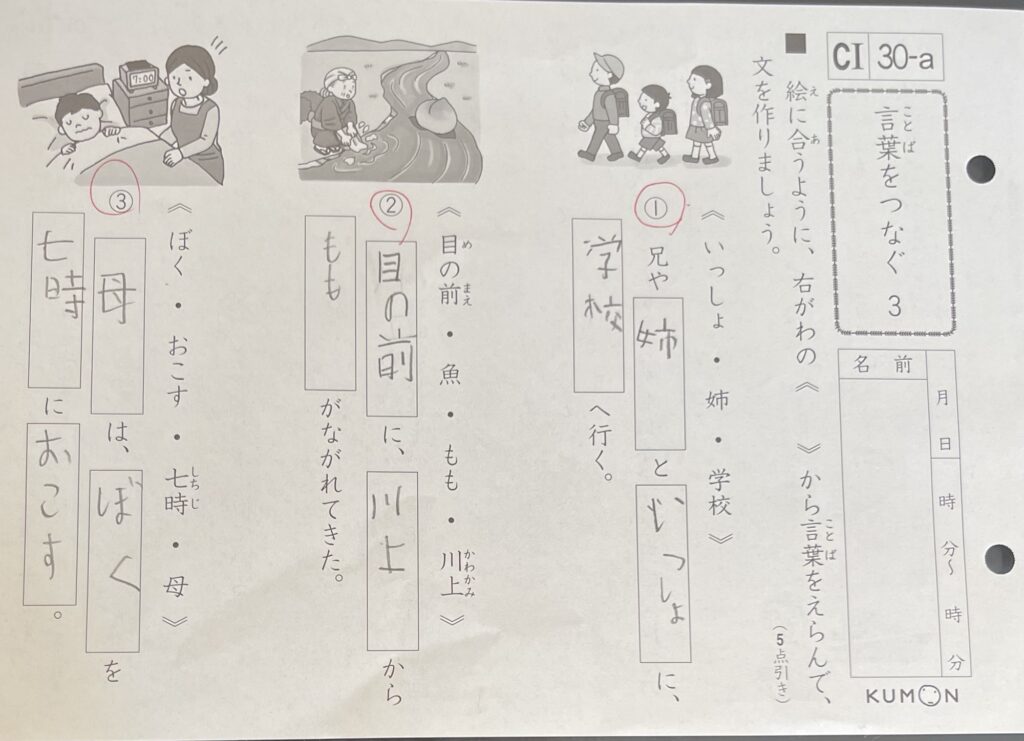 CI 30-a
言葉をつなぐ 3
ことば
月 日 時 分〜 時 分
名前
KUMON
■ 絵に合うように、右がわの《 》から言葉をえらんで、
え あ ことば
文を作りましょう。
(5点引き)
《いっしょ・姉・学校》
① 兄や姉といっしょに、
学校へ行く。
《目の前・魚・もも・川上》
め まえ かわかみ
② 目の前に、川上から
ももがながれてきた。
《ぼく・おこす・七時・母》
しちじ
7:00
③ 母は、ぼくを
七時におこす。